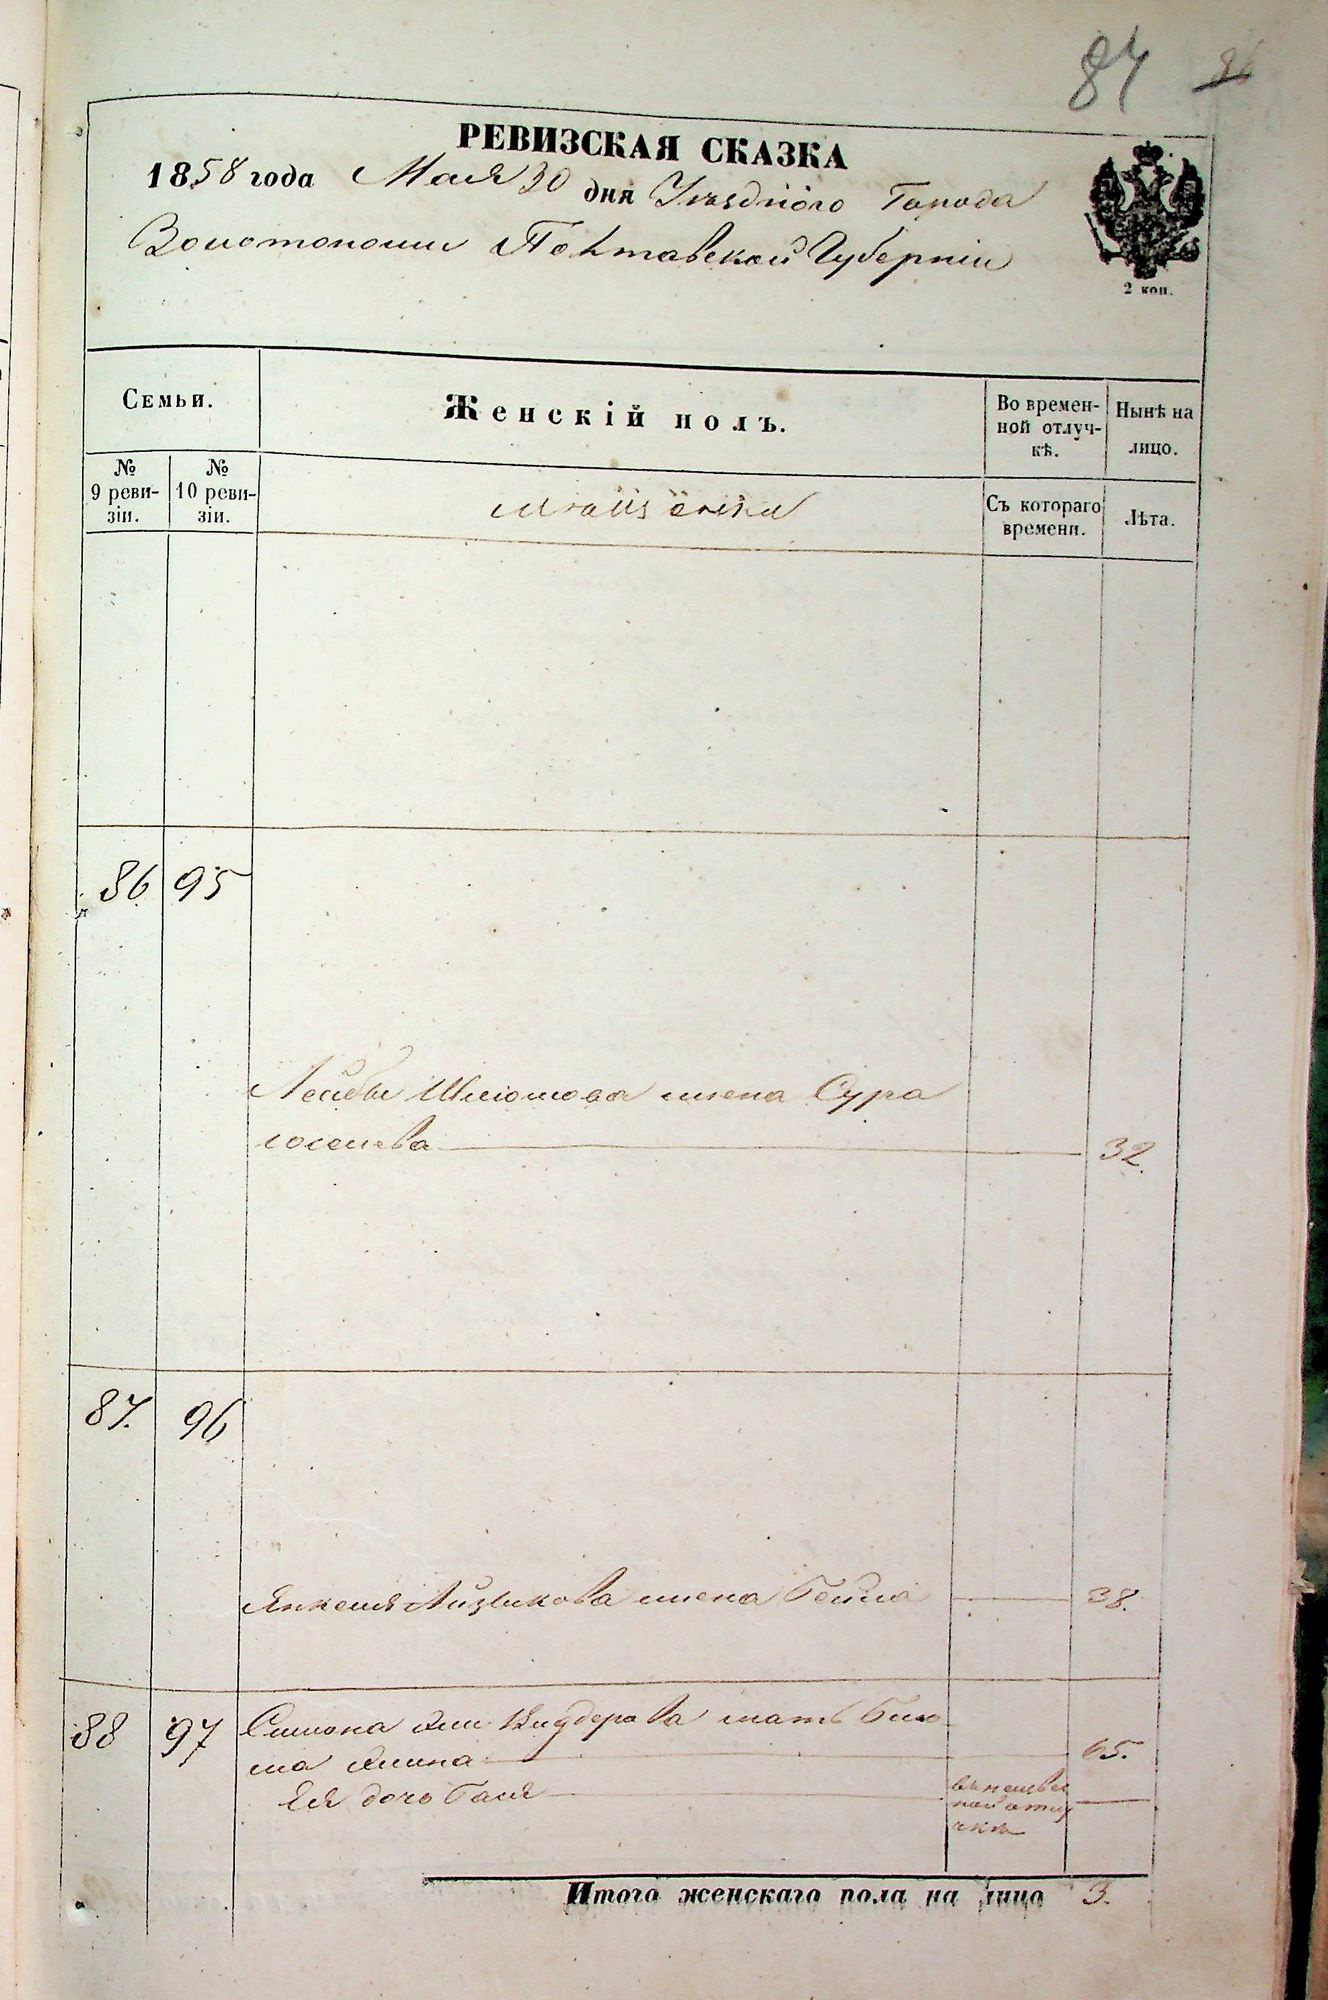 87 86
РЕВИЗСКАЯ СКАЗКА
1858 года Мая 30 дня Уѣзднаго Города
Золотоноши Полтавской Губерніи
2 коп.
Семьи.
Женскій полъ.
Во времен-
ной отлуч-
кѣ.
Нынѣ на
лицо.
№
9 реви-
зіи.
№
10 реви-
зіи.
Съ котораго
времени.
Лѣта.
86 95
Лейбы Шліомова жена Сура
32.
87. 96
Янкеля Айзикова жена Бейла 38.
88 97 мать
65.
Ея дочь Гася
Итого женскаго пола на лицо 3.